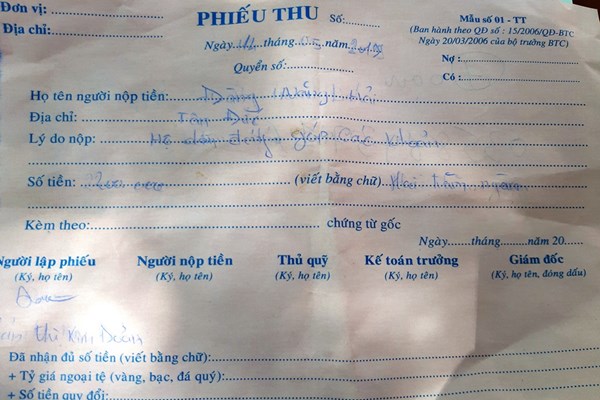 Đơn vị:
Địa chỉ:
PHIẾU THU Số:
Ngày tháng năm
Quyển số:
Mẫu số 01 - TT
(Ban hành theo QĐ số : 15/2006/QĐ-BTC
Ngày 20/03/2006 của bộ trưởng BTC)
Nợ :
Có :
Họ tên người nộp tiền:
Địa chỉ: Tân Đức
Lý do nộp: Hộ dân đóng góp các khoản
Số tiền: 200.000 (viết bằng chữ) Hai trăm ngàn
Kèm theo: chứng từ gốc
Ngày tháng năm 20
Người lập phiếu Người nộp tiền Thủ quỹ Kế toán trưởng Giám đốc
(Ký, họ tên) (Ký, họ tên) (Ký, họ tên) (Ký, họ tên) (Ký, họ tên, đóng dấu)
Thị Kim
Đã nhận đủ số tiền (viết bằng chữ):
+ Tỷ giá ngoại tệ (vàng, bạc, đá quý):
+ Số tiền quy đổi: